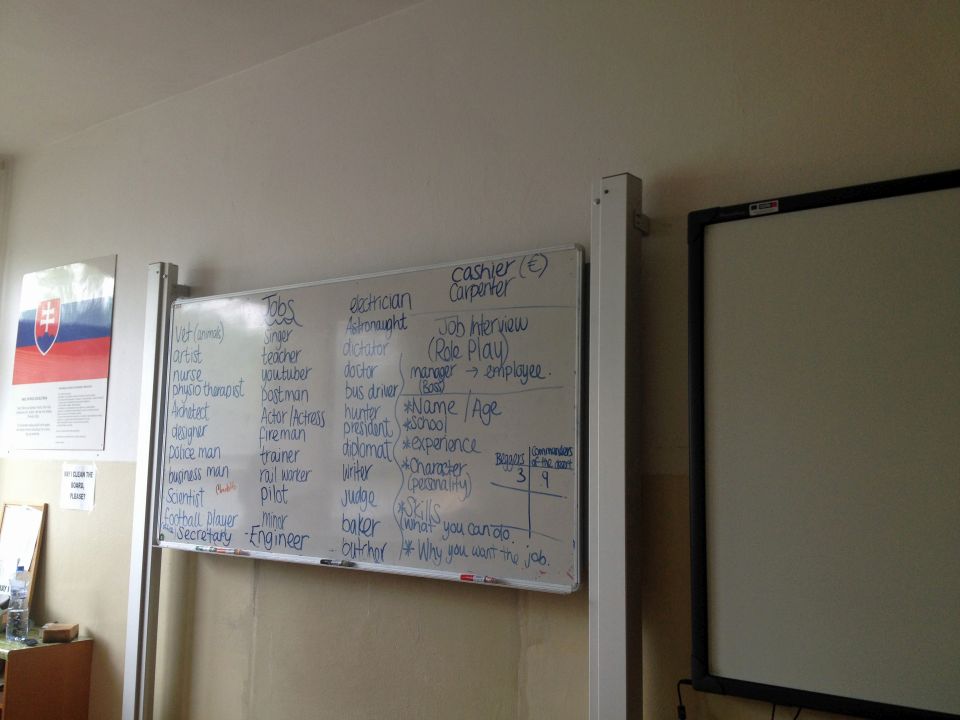 Jobs
vet (animals)
artist
nurse
physio therapist
Architect
designer
police man
business man
Scientist
football player
Secretary
singer
teacher
youtuber
postman
Actor/Actress
fireman
trainer
rail worker
pilot
minor
-Engineer
electrician
Astronaught
dictator
doctor
bus driver
hunter
president
diplomat
writer
judge
baker
butcher
cashier (€)
Carpenter
Job Interview
(Role Play)
manager → employee.
(Boss)
*Name / Age
*School
*experience
*Character
(personality)
*Skills
(what you can do
* Why you want the job.
Beggers
3
Commanders
of the
9
MAY I CLEAN THE
BOARD,
PLEASE?